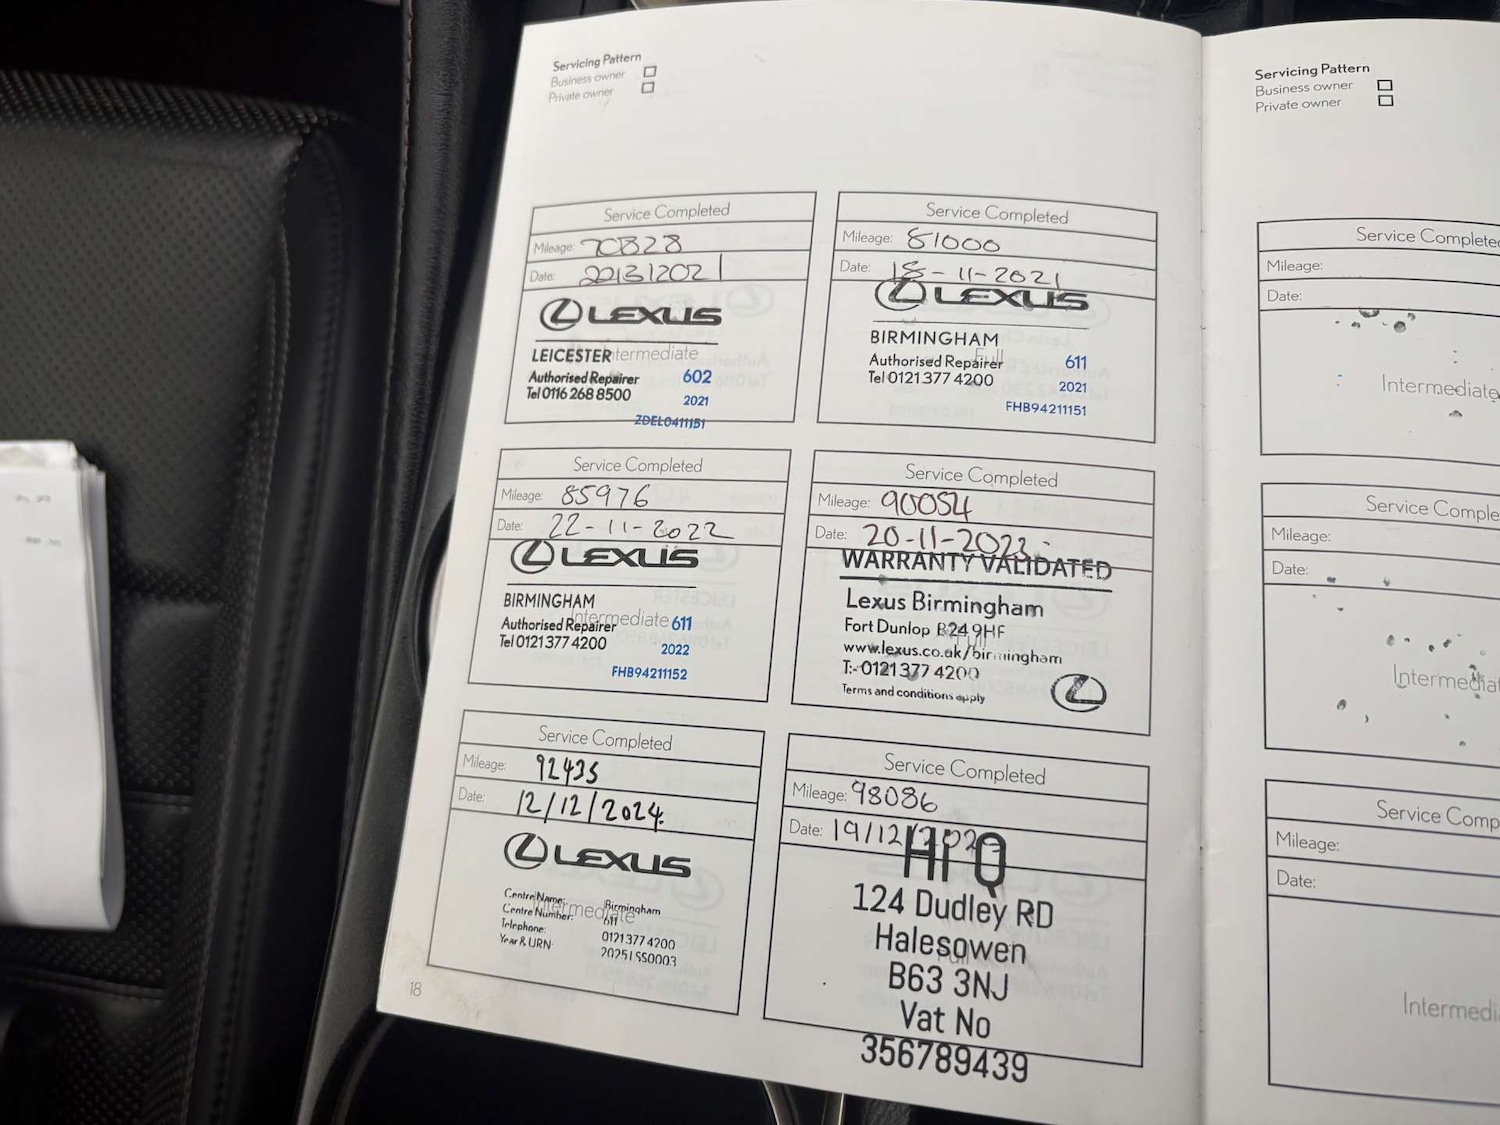 Servicing Pattern
Business owner
Private owner
Service Completed
Mileage: 70828
Date: 22/3/2021
LEXUS
LEICESTER Intermediate
Authorised Repairer 602
Tel 0116 268 8500 2021
ZDEL0411151
Service Completed
Mileage: 81000
Date: 18-11-2021
LEXUS
BIRMINGHAM
Full
Authorised Repairer 611
Tel 0121 377 4200 2021
FHB94211151
Service Completed
Mileage: 85976
Date: 22-11-2022
LEXUS
BIRMINGHAM
Intermediate
Authorised Repairer 611
Tel 0121 377 4200 2022
FHB94211152
Service Completed
Mileage: 90054
Date: 20-11-2023
WARRANTY VALIDATED
Lexus Birmingham
Fort Dunlop B24 9HF
Full
www.lexus.co.uk/birmingham
T:- 0121 377 4200
Terms and conditions apply
Service Completed
Mileage: 92435
Date: 12/12/2024.
LEXUS
Intermediate
Centre Name: Birmingham
Centre Number: 611
Telephone: 0121 377 4200
Year & URN: 2025LSS0003
Service Completed
Mileage: 98086
Date: 19/12/202
Hi Q
124 Dudley RD
Halesowen
Full
B63 3NJ
Vat No
356789439
18
Servicing Pattern
Business owner
Private owner
Service Complete
Mileage:
Date:
Intermediate
Service Comple
Mileage:
Date:
Intermediat
Service Comp
Mileage:
Date:
Intermedi